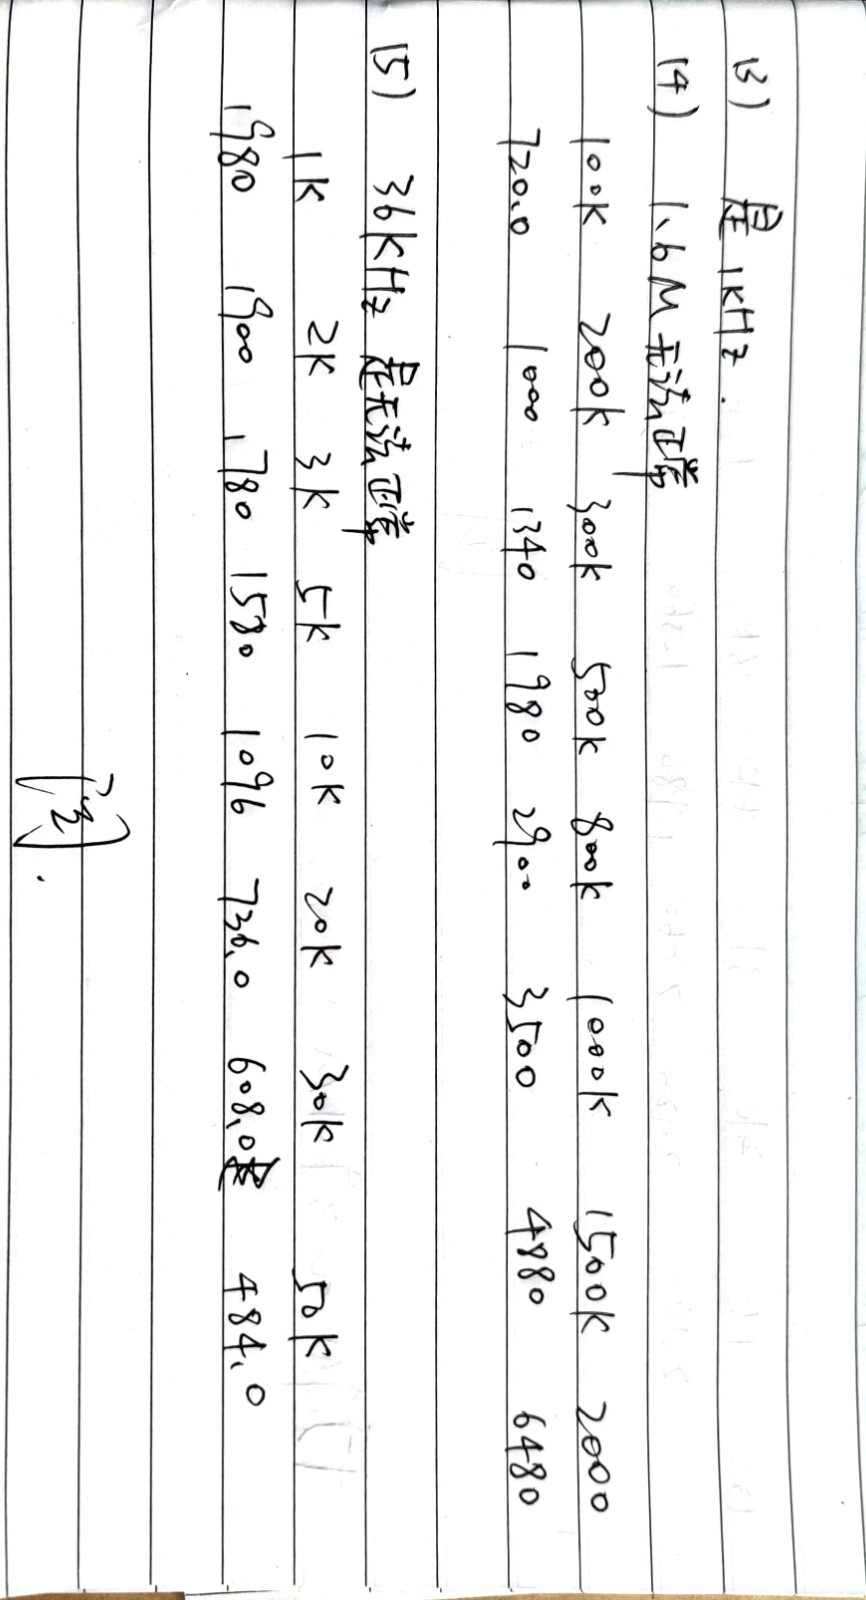 (3) 是1KHz.
(4) 1.6M无法正常
100K 200K 300K 500K 800K 1000K 1500K 2000
720.0 1000 1340 1980 2900 3500 4880 6480
(5) 36KHz 是无法正常
1K 2K 3K 5K 10K 20K 30K 50K
1980 1900 1780 1580 1096 736.0 608.0 484.0